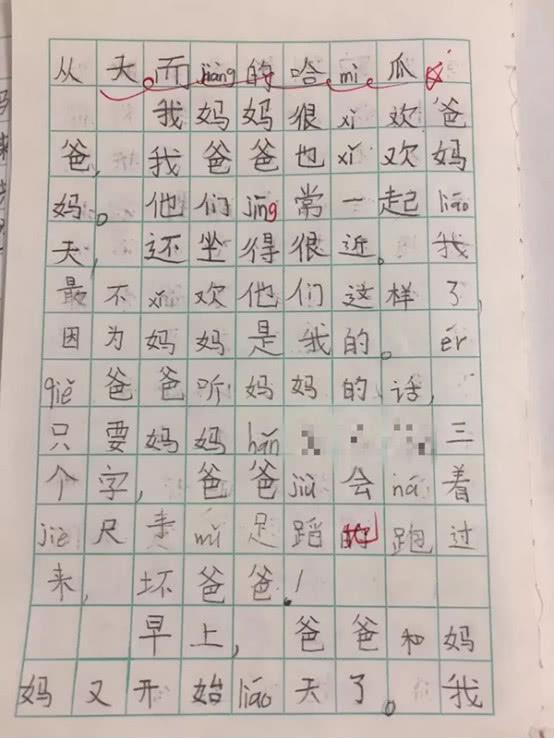 从天而jiàng的哈mì瓜
我妈妈很xǐ欢爸
爸,我爸爸也xǐ欢妈
妈。他们jīng常一起liáo
天,还坐得很近。我
最不xǐ欢他们这样了,
因为妈妈是我的。ér
qiě爸爸听妈妈的话,
只要妈妈hǎn三
个字,爸爸jiù会ná着
jiè尺手足蹈跑过
来,坏爸爸!
早上,爸爸和妈
妈又开始liáo天了。我